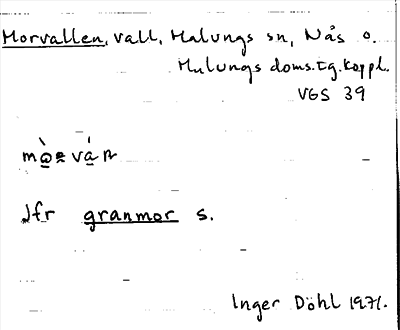 Morvallen, vall, Malungs sn, Nås o.
Malungs doms.tg.koppl.
VGS 39
Jfr granmor s.
Inger Döhl 1971.